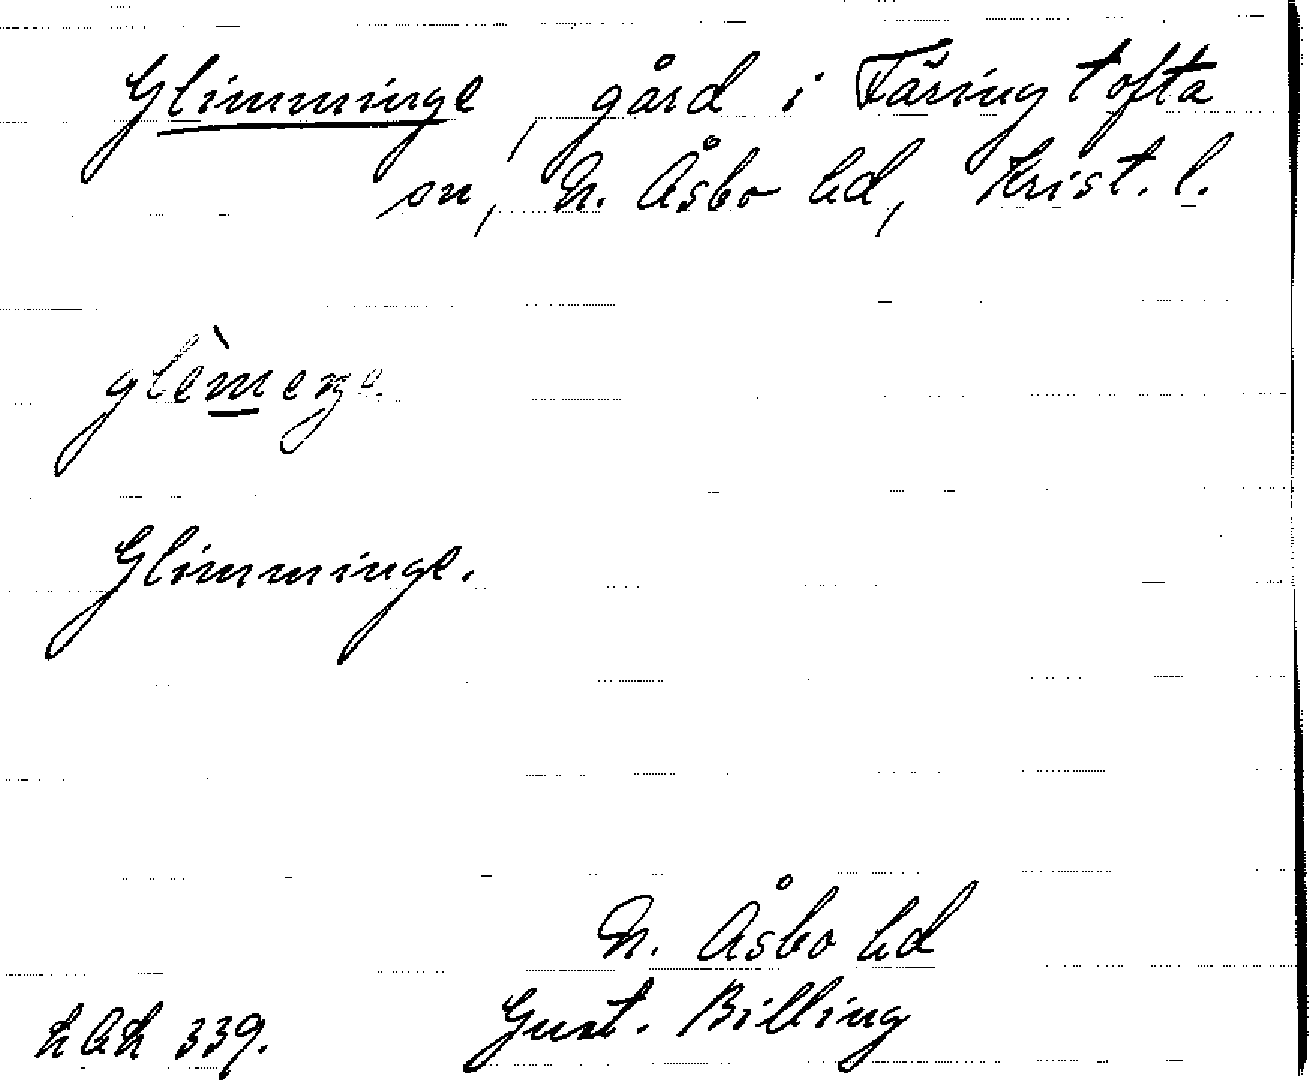 Glimminge, gård i Färingtofta
sn, N. Åsbo hd, Krist. l.
Glimminge.
N. Åsbo hd
Gust. Billing
339.